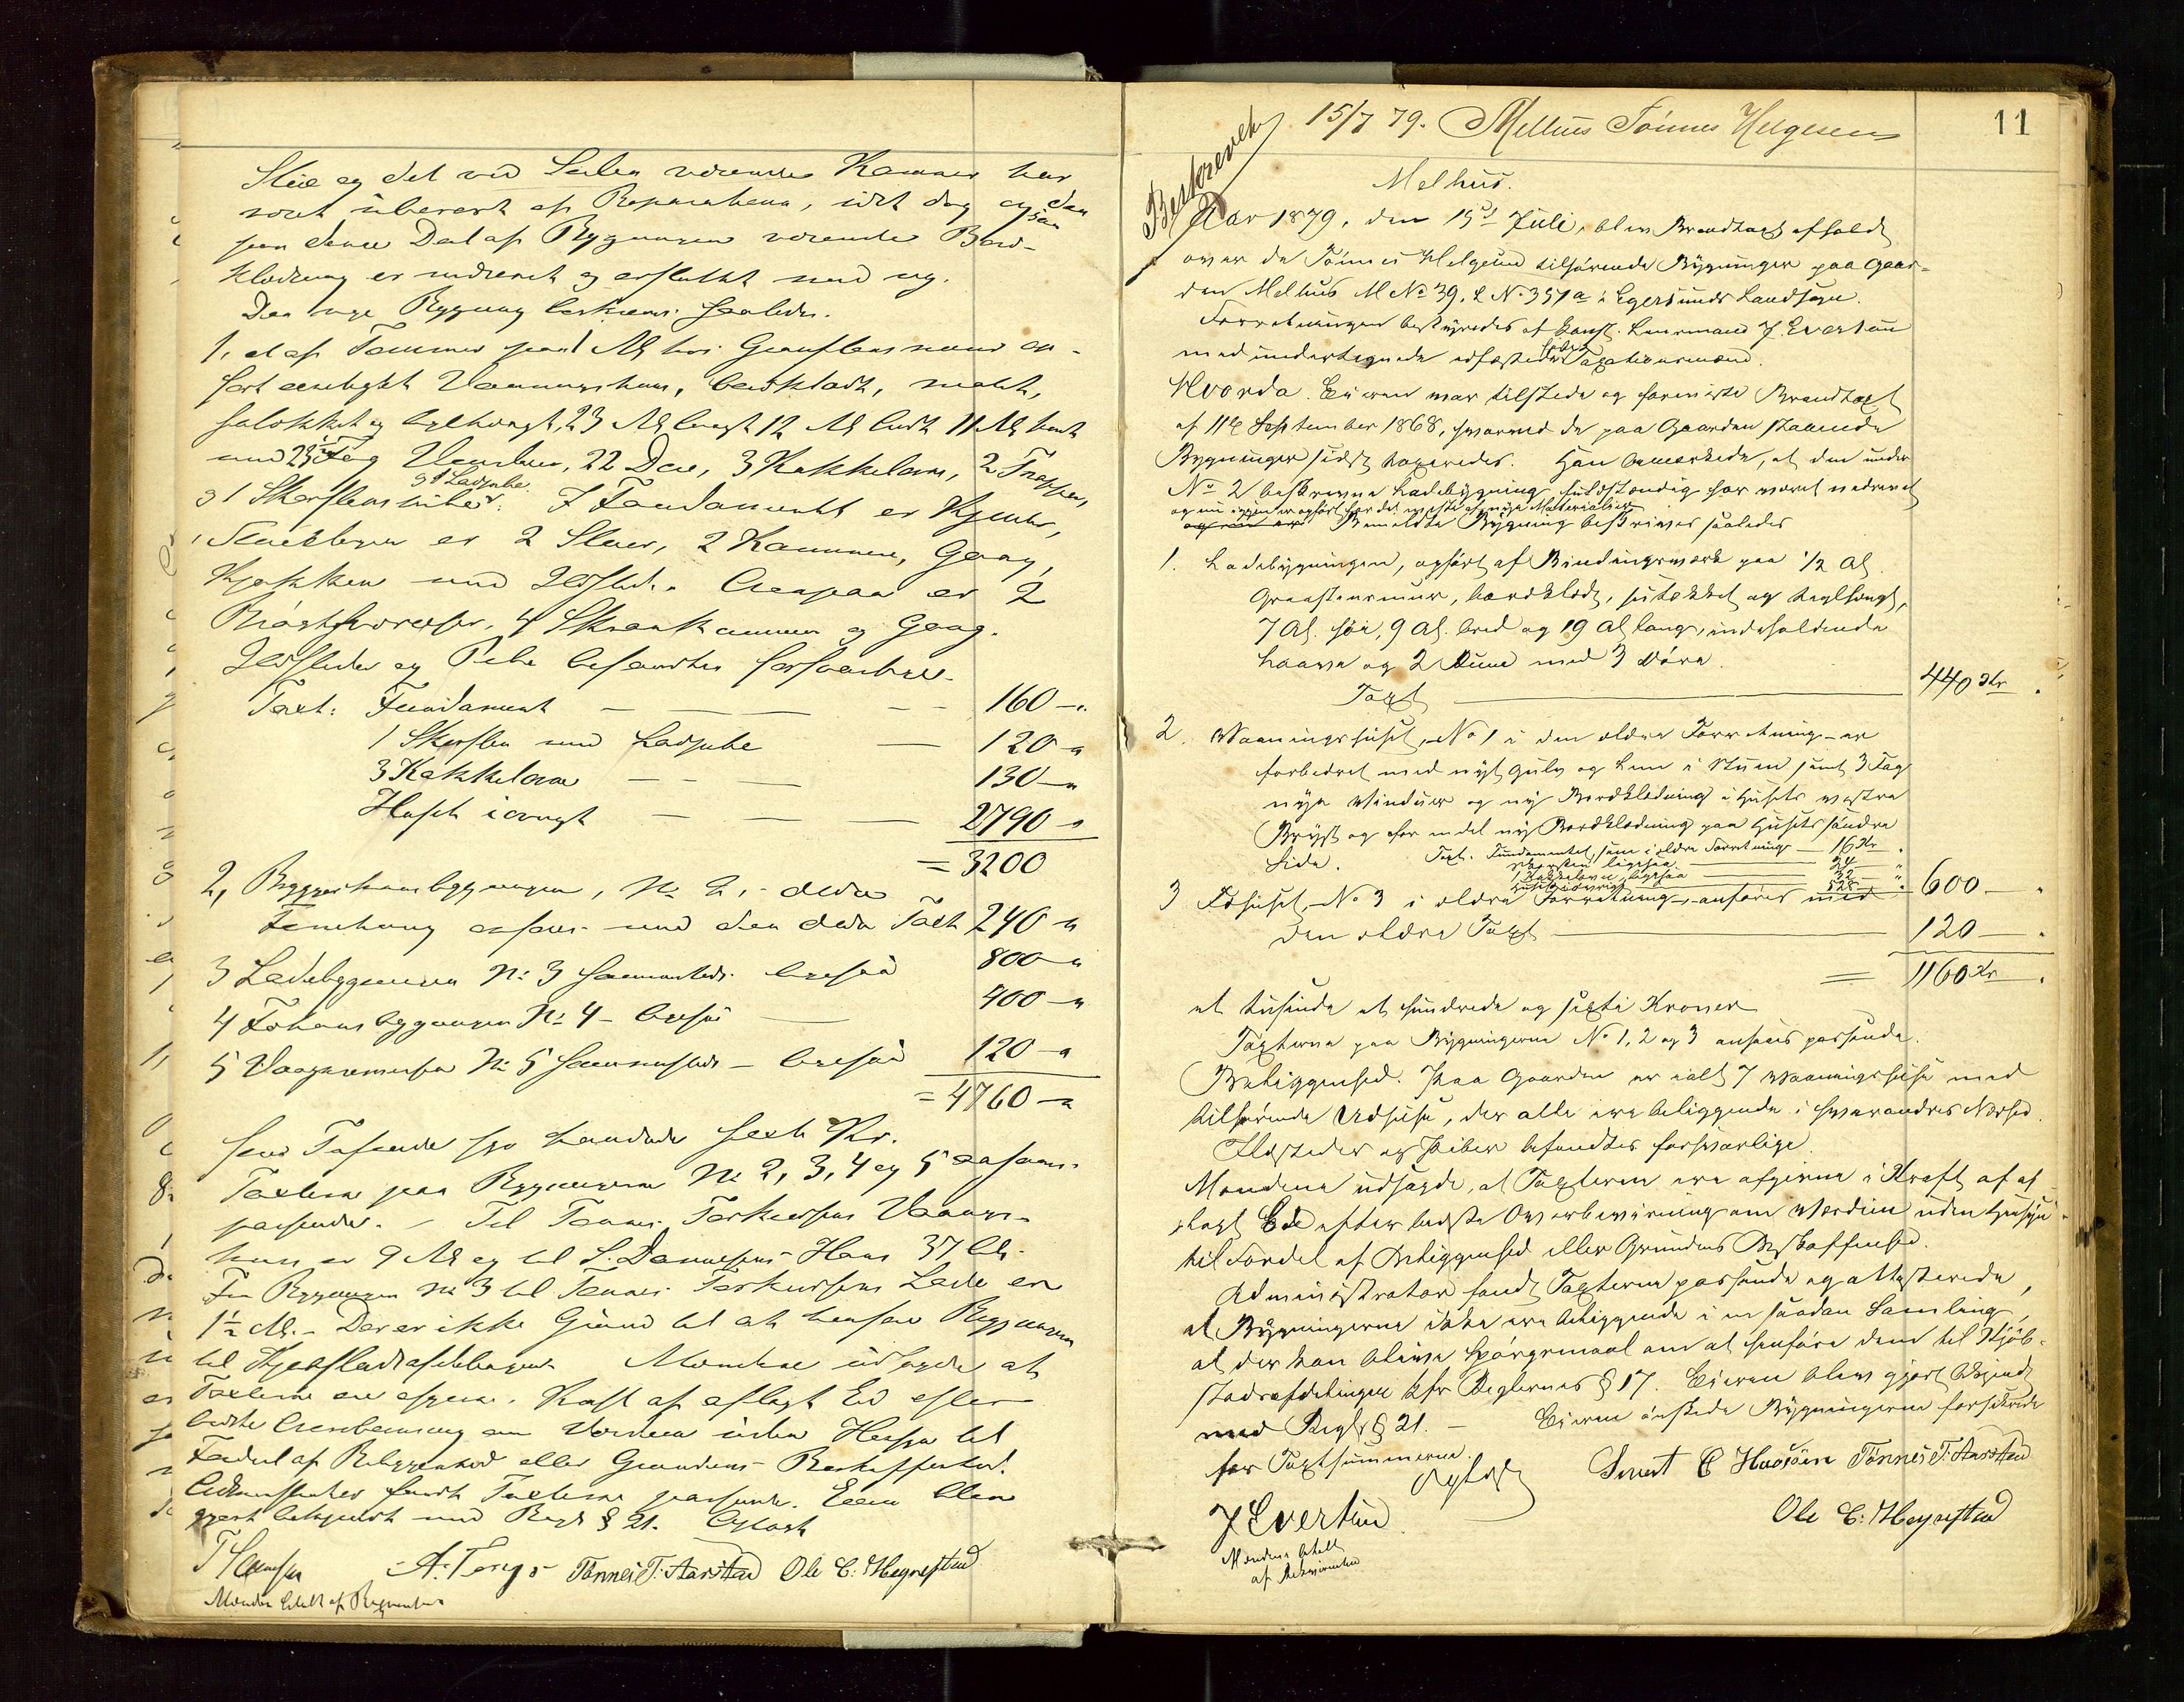 Stue og det ved Siden værende Kammer har
været ubenyt af Reparationen, idet dog og den
paa denne Deel af Bygningen værende Bord-
klædning er nedrevet og erstattet med ny.
Den nye Bygning beskrives saaledes.
1, et af Tømmer paa 1 Al høi Graastensmuur op-
ført Vaaningshuus, bordklædt, malet,
og teglhængt, 23 Al langt 12 Al bredt 11 Al høit
med 23 Fag Vinduer, 22 Døre, 3 Kakkelovne, 2 Trapper,
og 1 Ladpibe
og 1 Skorsteenspibe. I Fundamentet er Kjelder,
I Stueetagen er 2 Stuer, 2 Kammere, Gang,
Kjøkken med Ildsted. Ovenpaa er 2
4 Skraakammere og Gang.
Ildsteder og Pibe befandtes forsvarlige.
Taxt: Fundament — — — 160 — "
1 Skorsten med Ladpibe — 120 — "
3 Kakkelovne — — — 130 — "
Huset iøvrigt — — — 2790 — "
= 3200
2, Bryggerhuusbygningen, No 2, i ældre
Forretning ansees med den ældre Taxt 240 — "
3 Ladebygningen No 3 sammesteds ligesaa 800 — "
4 Fæhuusbygningen No 4 — ligesaa — 400 — "
5 Vognremisen No 5 sammesteds — ligesaa 120 — "
= 4760 — "
fire Tusinde syv hundrede sexti Kr.
Taxterne paa Bygningerne No 2, 3, 4 og 5 ansees
passende. — Til Tønnes Torkelsens Vaanings-
huus er 9 Al og til S. Danielsens Huus 37 Al.
Fra Bygningen No 3 til Tønnes Torkelsens Lade er
1½ Al. — Der er ikke Grund til at henføre Bygningerne
til Kjøbstadafdelingen. Mændene udsagde at
Taxterne ere afgivne i Kraft af aflagt Eed efter
bedste Overbeviisning om Værdien uden Hensyn til
Fordeel af Beliggenhed eller Grundens Beskaffenhed.
Administrator fandt Taxterne passende. Eieren blev
gjort bekjendt med Regl § 21. Oplæst
A. Tengs Tønnes T. Aarstad Ole C. Høgrestad
Mændene betalt af Reqvirenten
11
Beskrevet
15/7 79. Mellius Tönnes Helgesen
Melhus.
Aar 1879, den 15de Juli, blev Brandtaxt afholdt
over de Tönnes Helgesen tilhörende Bygninger paa Gaar-
den Melhus M No 39. L No 351a i Egersunds Landsogn.
Forretningen bestyredes af konst. Lensmand J. Evertsen
med undertegnede edfæstede faste Taxationsmænd.
Hvorda. Eieren var tilstede og foreviste Brandtaxt
af 11te September 1868, hvorved de paa Gaarden staaende
Bygninger sidst taxeredes. Han bemærkede, at den under
No 2 beskrevne Ladebygning fuldstændig har været nedrevet
og nu igjen er opført for det meste af nye Materialier
Anmeldte Bygning beskrives saaledes
1. Ladebygningen, opfört af Bindingsværk paa 1/2 Al.
Graastensmuur, bordklædt, sutækket og teglhængt,
7 Al. höi, 9 Al. bred og 19 Al lang, indeholdende
Laave og 2 Rum med 3 Döre.
Taxt — 440 Kr.
2. Vaaningshuset, No 1 i den ældre Forretning — er
forbedret med nyt Gulv og Lem i Stuen samt 3 Fag
nye Vinduer og ny Bordklædning i Husets vestre
Bryst og for endel ny Bordklædning paa Husets söndre
Side. Taxt. Fundamentet, som i ældre Forretning — 16 Kr.
Skorsten ligesaa — 24 — "
1 Kakkelovn, ligesaa — 32 — "
Huset iövrigt — 528 — " 600 — "
3 Fæhuset, No 3 i ældre Forretning, anföres med
den ældre Taxt — 120 — "
= 1160 Kr.
et tusinde et hundrede og sexti Kroner
Taxterne paa Bygningerne No 1, 2 og 3 ansees passende.
Beliggenhed. Paa Gaarden er ialt 7 Vaaningshuse med
tilhörende Udhuse, der alle ere beliggende i hverandres Nærhed.
Ildsteder og Piber befandtes forsvarlige.
Mændene udsagde, at Taxterne ere afgivne i Kraft af af-
lagt Ed efter bedste Overbeviisning om Værdien uden Hensyn
til Fordel af Beliggenhed eller Grundens Beskaffenhed.
Administrator fandt Taxterne passende og attesterede,
at Bygningerne ikke ere beliggende i en saadan Samling,
at der kan blive Spörgsmaal om at henföre dem til Kjöb-
stadsafdelingen kfr Reglernes § 17. Eieren blev gjort bekjendt
med Regl § 21. — Eieren önskede Bygningerne forsikrede
for Taxtsummerne.
Oplæst
J Evertsen Sivert C Hadsöen Tönnes T. Aarstad
Ole C. Høgrestad
Mændene betalt
af Rekvirenten